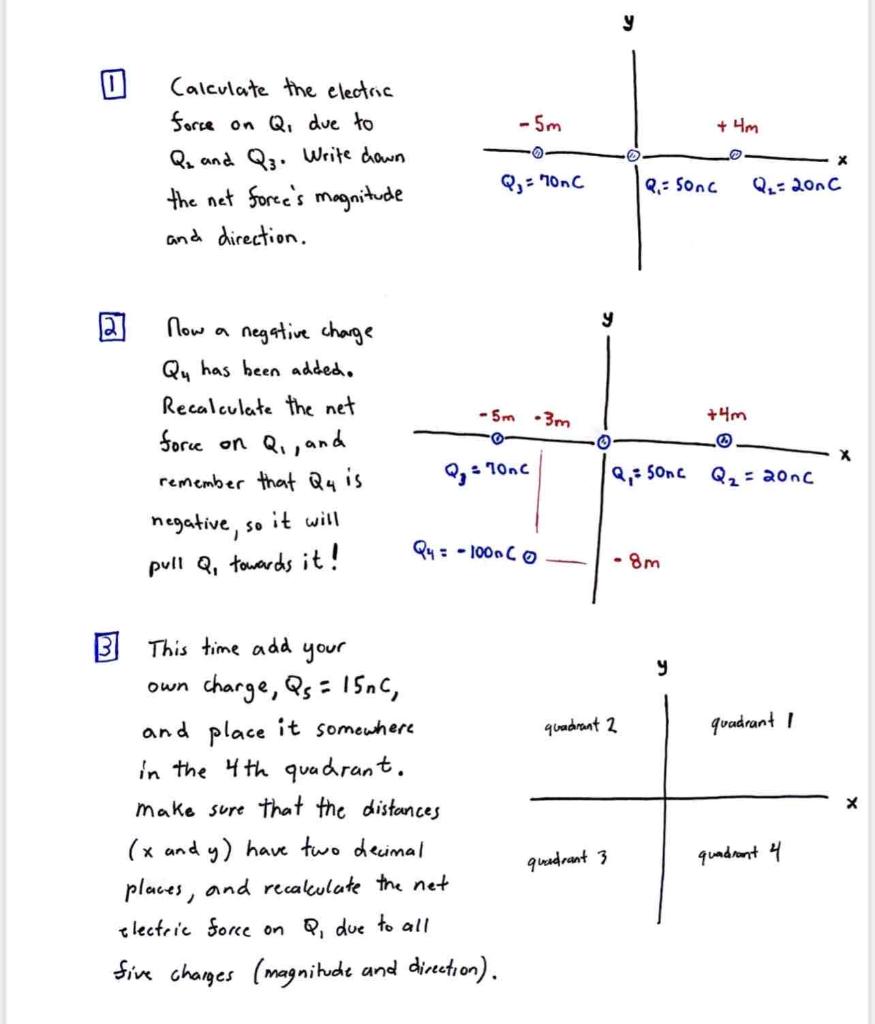 1 Calculate the electric
force on Q₁ due to
Q₂ and Q₃. Write down
the net force's magnitude
and direction.
y
-5m
+4m
x
Q₃ = 70nC
Q₁ = 50nC
Q₂ = 20nC
2 Now a negative charge
Q₄ has been added.
Recalculate the net
force on Q₁, and
remember that Q₄ is
negative, so it will
pull Q₁ towards it!
y
-5m
-3m
+4m
x
Q₃ = 70nC
Q₁ = 50nC
Q₂ = 20nC
Q₄ = -100nC
-8m
3 This time add your
own charge, Q₅ = 15nC,
and place it somewhere
in the 4th quadrant.
Make sure that the distances
(x and y) have two decimal
places, and recalculate the net
electric force on Q₁ due to all
five charges (magnitude and direction).
y
quadrant 2
quadrant 1
x
quadrant 3
quadrant 4